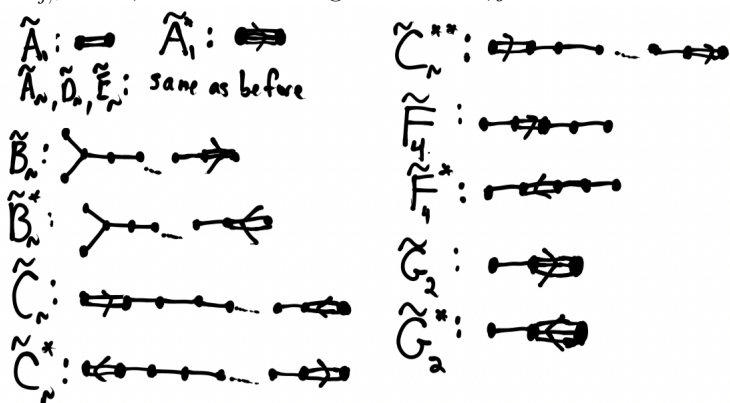 Ã₁: Ã₁*:
Ãₙ, D̃ₙ, Ẽₙ: same as before
B̃ₙ:
B̃ₙ*:
C̃ₙ:
C̃ₙ*:
C̃ₙ**:
F̃₄:
F̃₄*:
G̃₂:
G̃₂*: